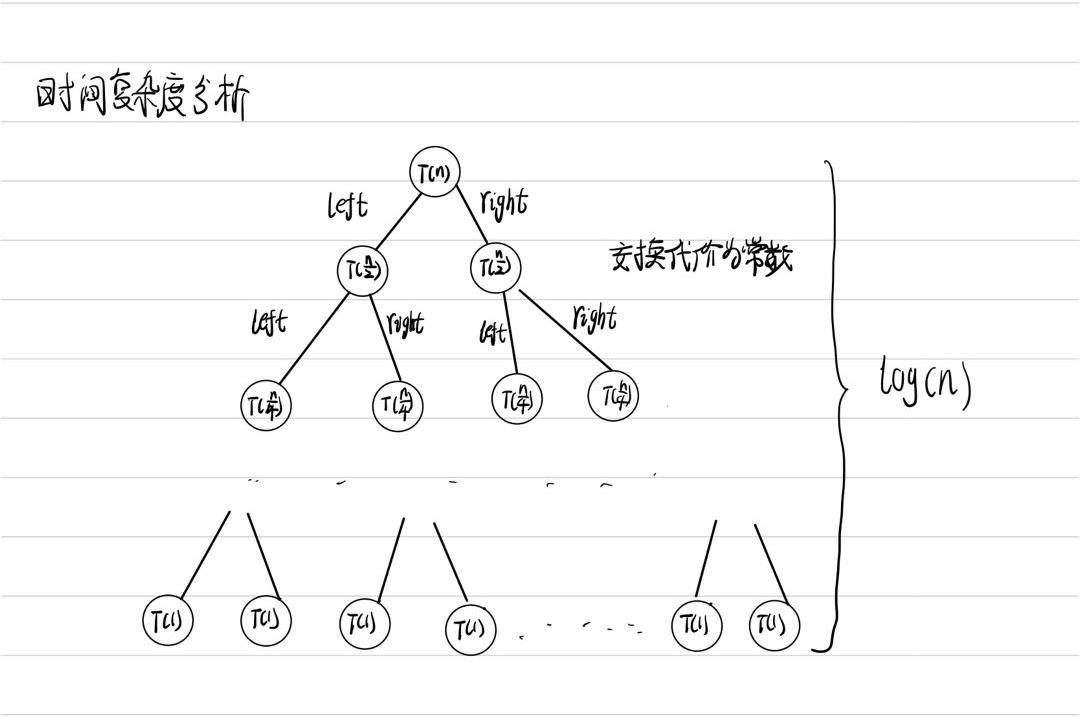 时间复杂度分析
T(n)
left right
T(n/2) T(n/2) 交换代价为常数
left right left right
T(n/4) T(n/4) T(n/4) T(n/4)
log(n)
T(1) T(1) T(1) T(1) ...... T(1) T(1)